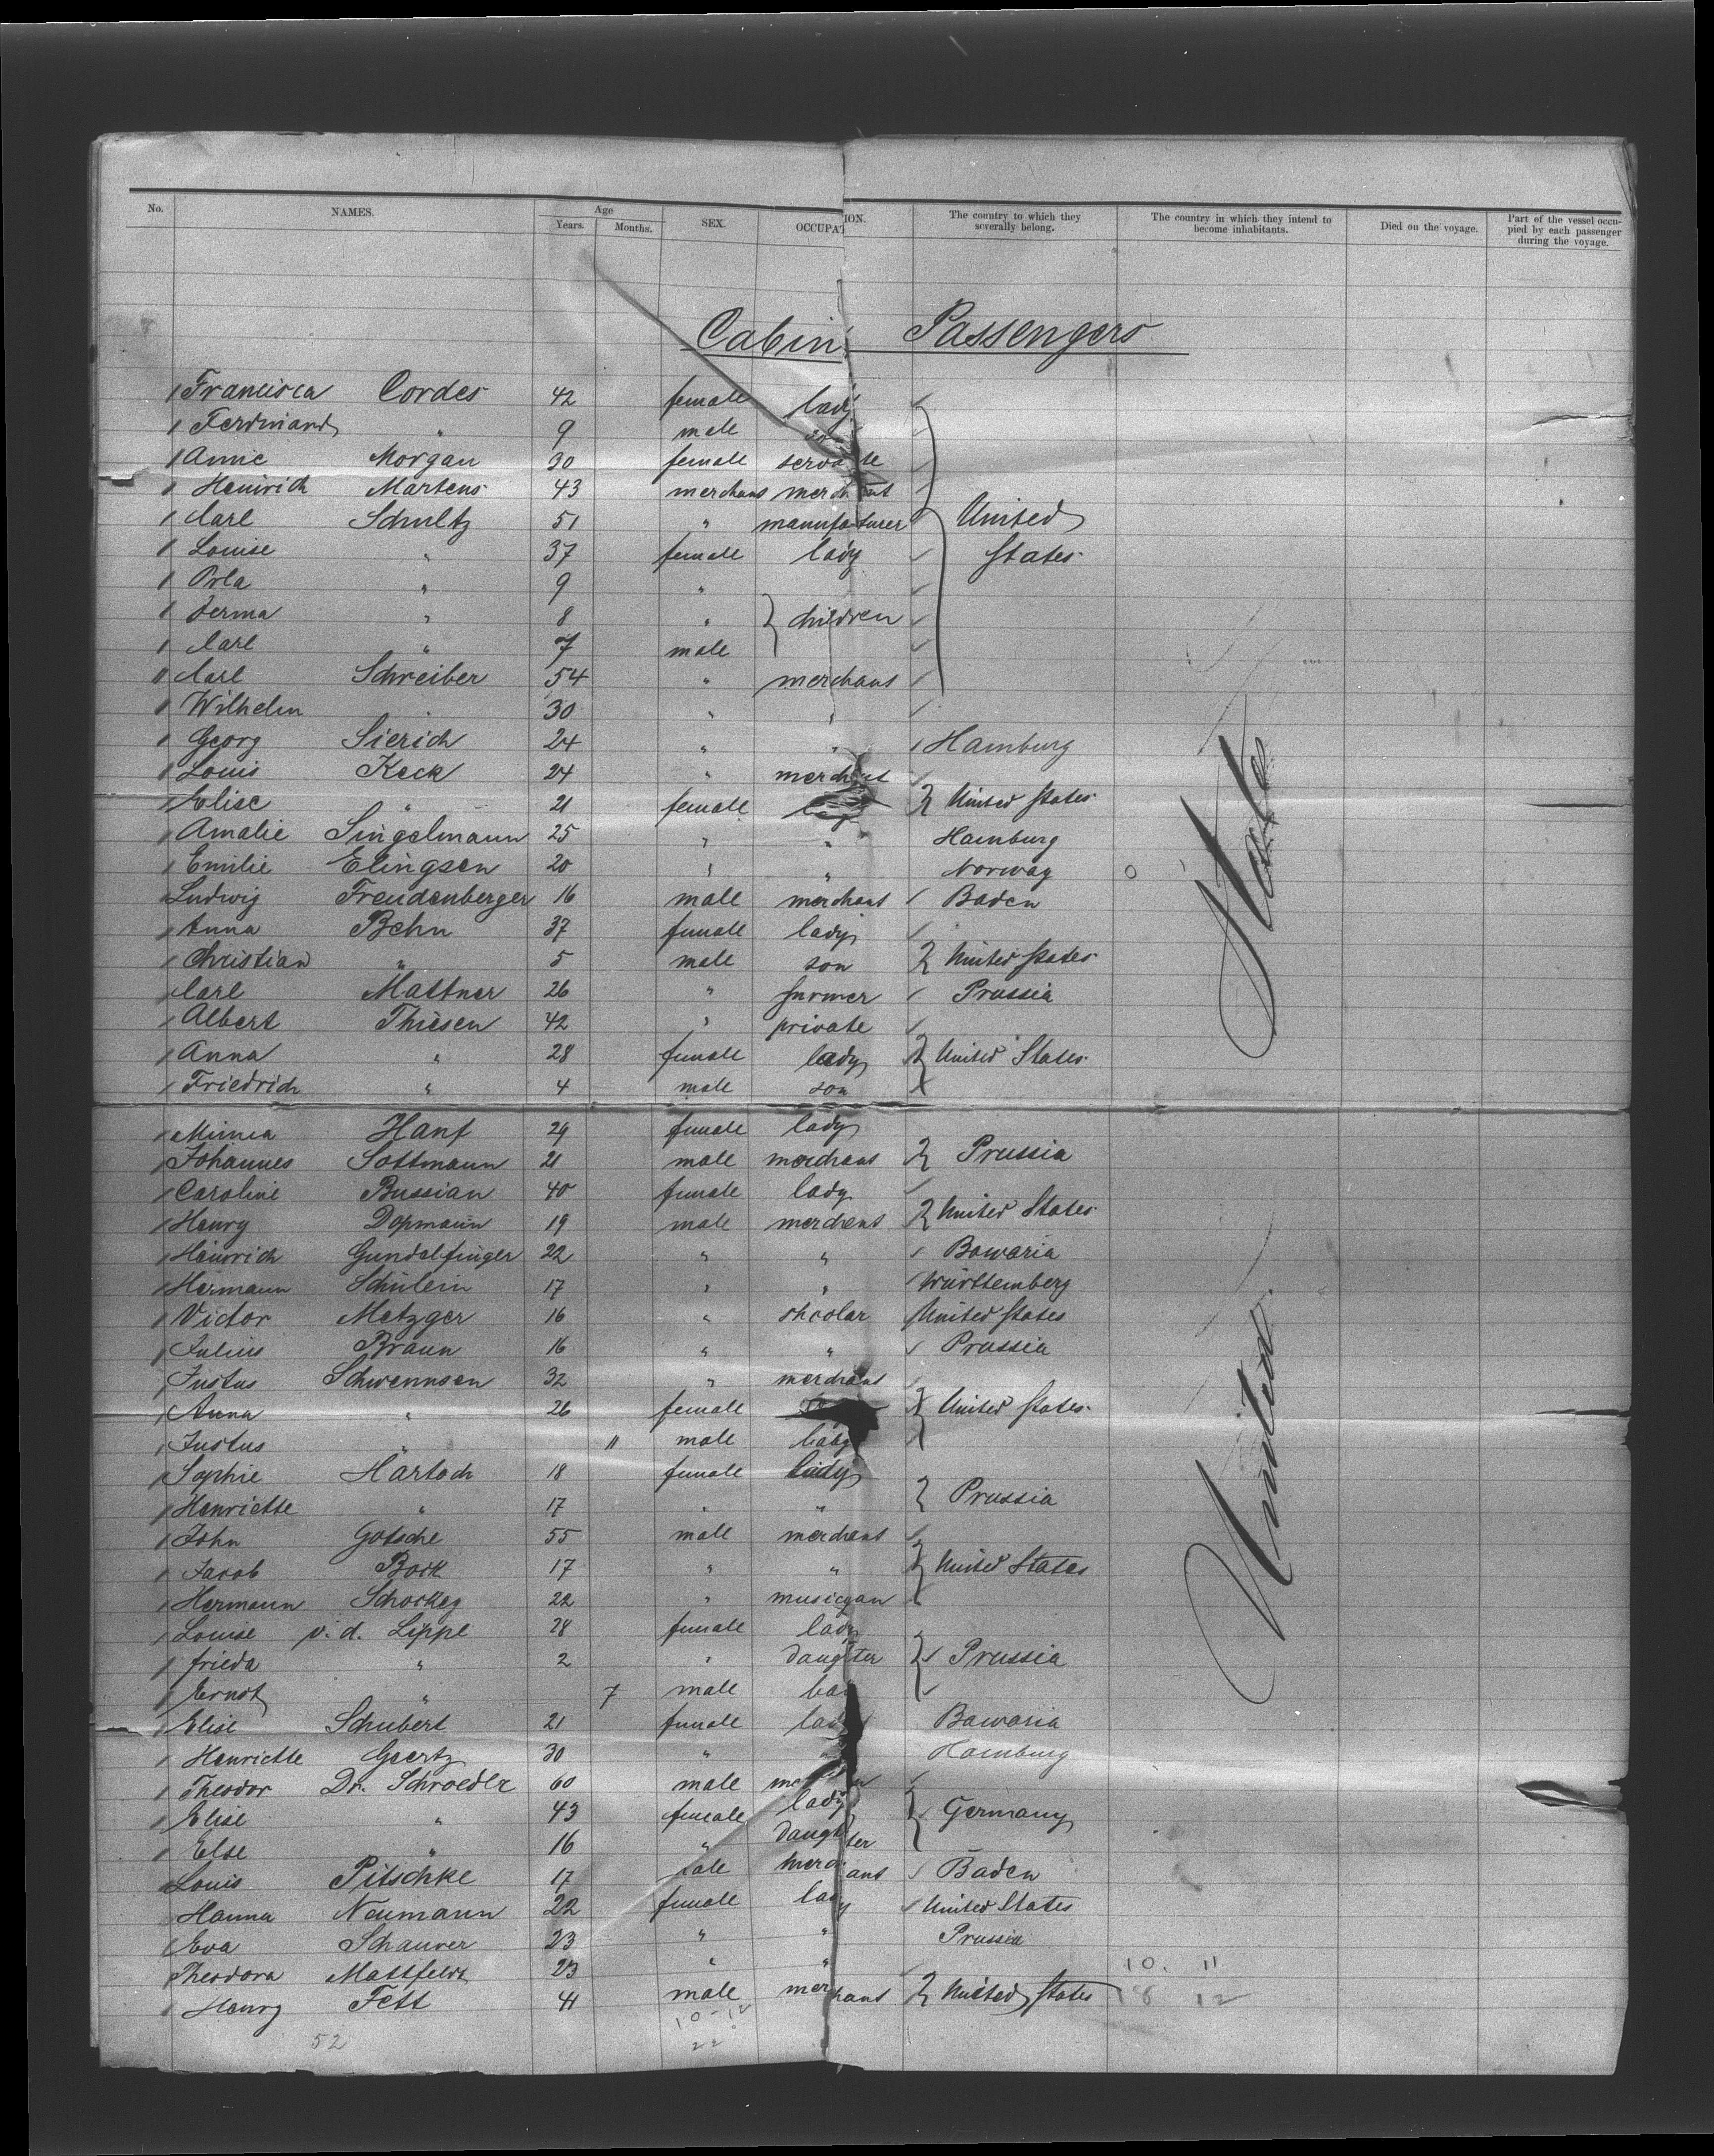 No. NAMES. Age Years. Months. SEX. OCCUPATION. The country to which they severally belong. The country in which they intend to become inhabitants. Died on the voyage. Part of the vessel occupied by each passenger during the voyage.
Cabin Passengers
Francisca Cordes 42 female lady
Ferdinand " 9 male
Annie Morgan 30 female
Heinrich Martens 43 merchant merchant
Carl Schultz 51 " manufacturer United
Louise " 37 female lady States
Orla " 9 "
Irma " 8 " } children
Carl " 7 male
Carl Schreiber 54 " merchant
Wilhelm " 30 " "
Georg Sierich 24 " " Hamburg
Louis Keck 24 " merchant
Elise " 21 female lady } United States
Amalie Singelmann 25 " " Hamburg
Emilie Elingsen 20 " " Norway
Ludwig Freudenberger 16 male merchant Baden
Anna Behn 37 female lady
Christian " 5 male son } United States
Carl Mattner 26 " farmer Prussia
Albert Thiesen 42 " private
Anna " 28 female lady } United States
Friedrich " 4 male son
Minna Hanf 29 female lady
Johannes Sottmann 21 male merchant } Prussia
Caroline Bussian 40 female lady
Henry Depmann 19 male merchant } United States
Heinrich Gundelfinger 22 " " Bawaria
Hermann Schülein 17 " " Württemberg
Victor Metzger 16 " shcolar United States
Julius Braun 16 " " Prussia
Justus Schwennsen 32 " merchant
Anna " 26 female } United States
Justus " 11 male baby
Sophie Hartoch 18 female lady
Henriette " 17 " " } Prussia
John Gotsche 55 male merchant
Jacob Bock 17 " " } United States
Hermann Schorkey 22 " musicyan
Louise v. d. Lippe 28 female lady
Frieda " 2 " daughter } Prussia
Ernst " 7 male
Elise Schubert 21 female lady Bawaria
Henriette Geertz 30 " " Hamburg
Theodor Dr. Schroeder 60 male
Elise " 43 female lady } Germany
Else " 16 " daughter
Louis Pitschke 17 male merchant Baden
Hanna Neumann 22 female lady United States
Eva Schaurer 23 " " Prussia
Theodora Mattfeldt 23 " "
Henry Fett 41 male merchant } United States
United States
10. 11
18 12
10-12
52 22